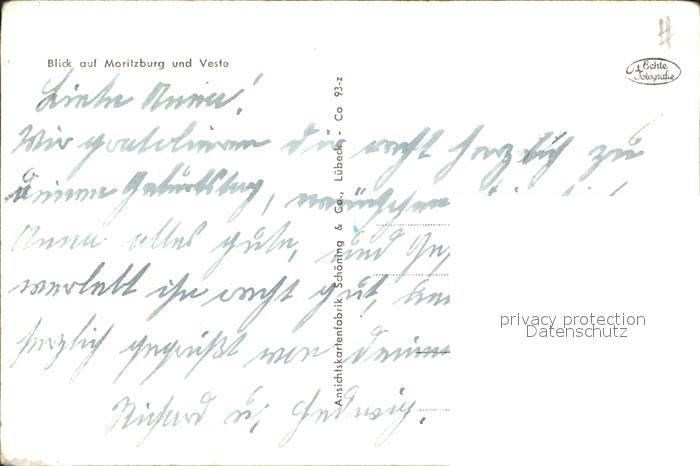 Blick auf Moritzburg und Veste
Echte
Fotografie
Liebe Anna!
Wir gratulieren dir recht herzlich zu
deinem Geburtstag, wünschen
Anna alles gute, und
verlebt ihn recht gut,
herzlich gegrüßt von deinen
Richard u, Hedwig.
Ansichtskartenfabrik Schöning & Co., Lübeck - Co 93-z
privacy protection
Datenschutz